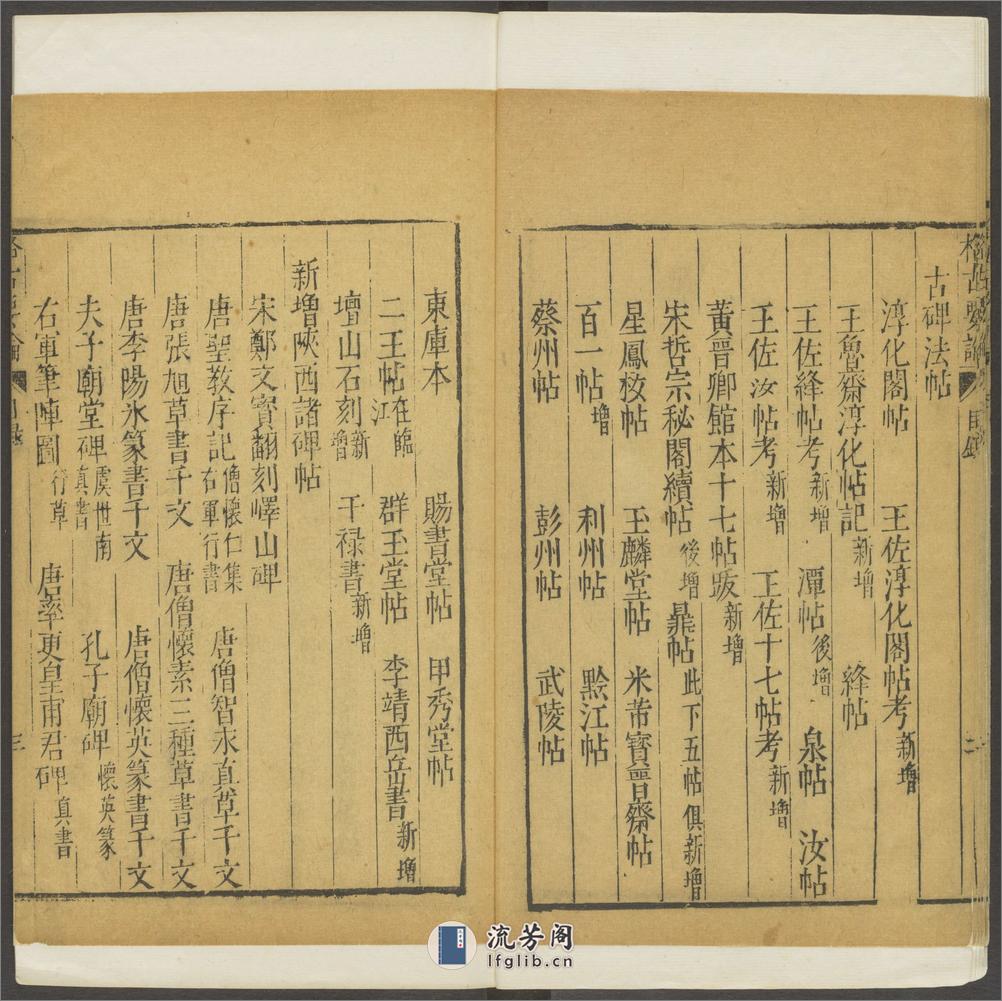 格古要論 目錄 二
古碑法帖
淳化閣帖 王佐淳化閣帖考新增
王魯齋淳化帖記新增 絳帖
王佐絳帖考新增 潭帖後增 泉帖 汝帖
王佐汝帖考新增 王佐十七帖考新增
黃晉卿館本十七帖跋新增
宋哲宗秘閣續帖後增 㬥帖此下五帖俱新增
星鳳柭帖 玉麟堂帖 米芾寳晉齋帖
百一帖增 利州帖 黔江帖
蔡州帖 彭州帖 武陵帖
東庫本 賜書堂帖 甲秀堂帖
二王帖在臨江 群玉堂帖 李靖西岳書新增
壇山石刻新增 干禄書新增
新增陝西諸碑帖
宋鄭文寶翻刻嶧山碑
唐聖教序記僧懷仁集右軍行書 唐僧智永真草千文
唐張旭草書千文 唐僧懷素三種草書千文
唐李陽氷篆書千文 唐僧懷英篆書千文
夫子廟堂碑虞世南真書 孔子廟碑懷英篆
右軍筆陣圖行草 唐率更皇甫君碑真書
三
流芳阁
lfglib.cn